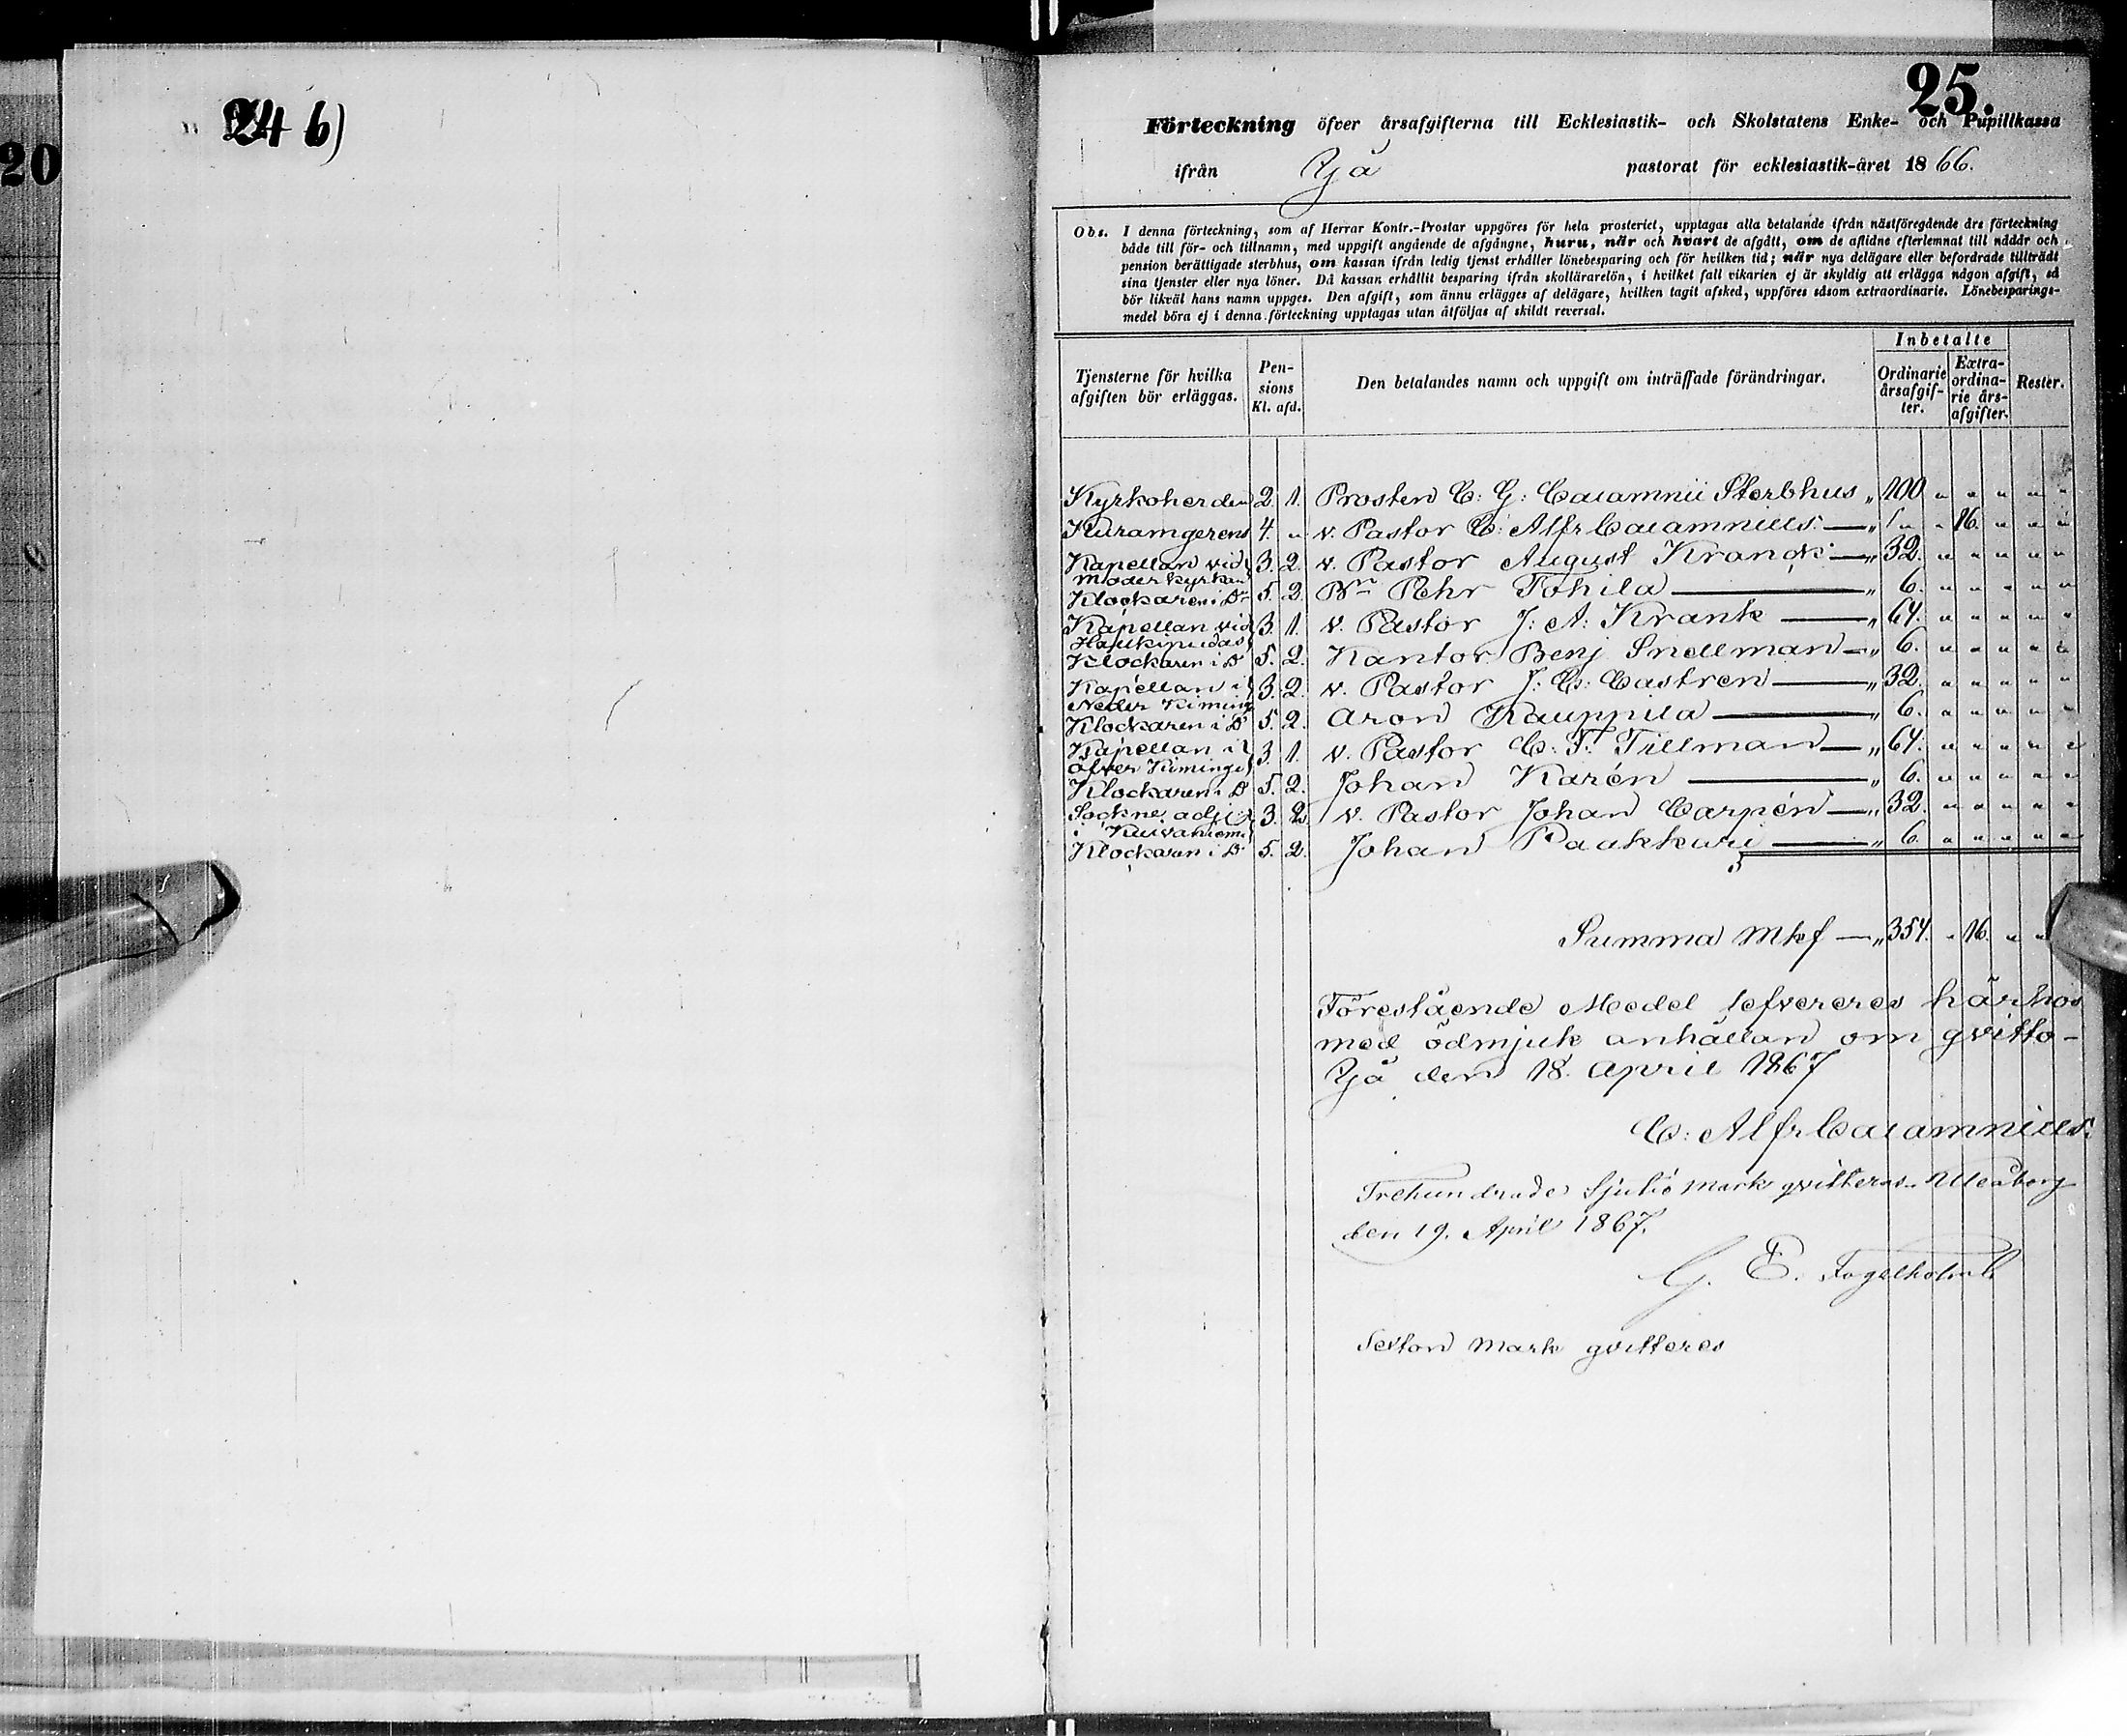 24 b)
20
25.
Förteckning öfver årsafgifterna till Ecklesiastik- och Skolstatens Enke- och Pupillkassa
ifrån Ijå pastorat för ecklesiastik-året 1866.
Obs. I denna förteckning, som af Herrar Kontr.-Prostar uppgöres för hela prosteriet, upptagas alla betalande ifrån nästföregående års förteckning
både till för- och tillnamn, med uppgift angående de afgångne, huru, när och hvart de afgått, om de aflidne efterlemnat till nådår och
pension berättigade sterbhus, om kassan ifrån ledig tjenst erhåller lönebesparing och för hvilken tid; når nya delägare eller befordrade tillträdt
sina tjenster eller nya löner. Då kassan erhållit besparing ifrån skollärarelön, i hvilket fall vikarien ej är skyldig att erlägga någon afgift, så
bör likväl hans namn uppges. Den afgift, som ännu erlägges af delägare, hvilken tagit afsked, uppföres såsom extraordinarie. Lönebesparings-
medel böra ej i denna förteckning upptagas utan åtföljas af skildt reversal.
Tjensterne för hvilka afgiften bör erläggas. Pensions Kl. afd. Den betalandes namn och uppgift om inträffade förändringar. Inbetalte Ordinarie årsafgifter. Extraordinarie årsafgifter. Rester.
Kyrkoherden 2. 1. Prosten C: G: Calamnii Sterbhus „ 100 „ „ „ „ „
4. „ v. Pastor C: Alfr Calamnius — „ „ „ 16. „ „ „
Kapellan vid moderkyrkan 3. 2. v. Pastor August Kranck — „ 32. „ „ „ „ „
Klockaren i Do 5. 2. Pehr Tohila — „ 6. „ „ „ „ „
Kapellan vid Haukipudas 3. 1. v. Pastor J: A: Krank — „ 64. „ „ „ „ „
Klockaren i Do 5. 2. Kantor Benj Snellman — „ 6. „ „ „ „ „
Kapellan i Neder Kiminge 3. 2. v. Pastor J: C: Castren — „ 32. „ „ „ „ „
Klockaren i Do 5. 2. Aron Kauppila — „ 6. „ „ „ „ „
Kapellan i öfver Kiminge 3. 1. v. Pastor C: F: Tillman — „ 64. „ „ „ „ „
Klockaren i Do 5. 2. Johan Karén — „ 6. „ „ „ „ „
Sockne adj: i Kuivaniemi 3. 2. v. Pastor Johan Carpén — „ 32. „ „ „ „ „
Klockaren i Do 5. 2. Johan Paakkari — „ 6. „ „ „ „ „
Summa Mkf — „ 354. „ 16. „ „
Förestående Medel lefvereres härhos
med ödmjuk anhållan om qvitto-
Ijå den 18. April 1867
C: Alfr Calamnius.
Trehundrade Sjutio mark qvitteras. Uleåborg
den 19. April 1867.
G. E. Fogelholm
Sexton mark qvitteres